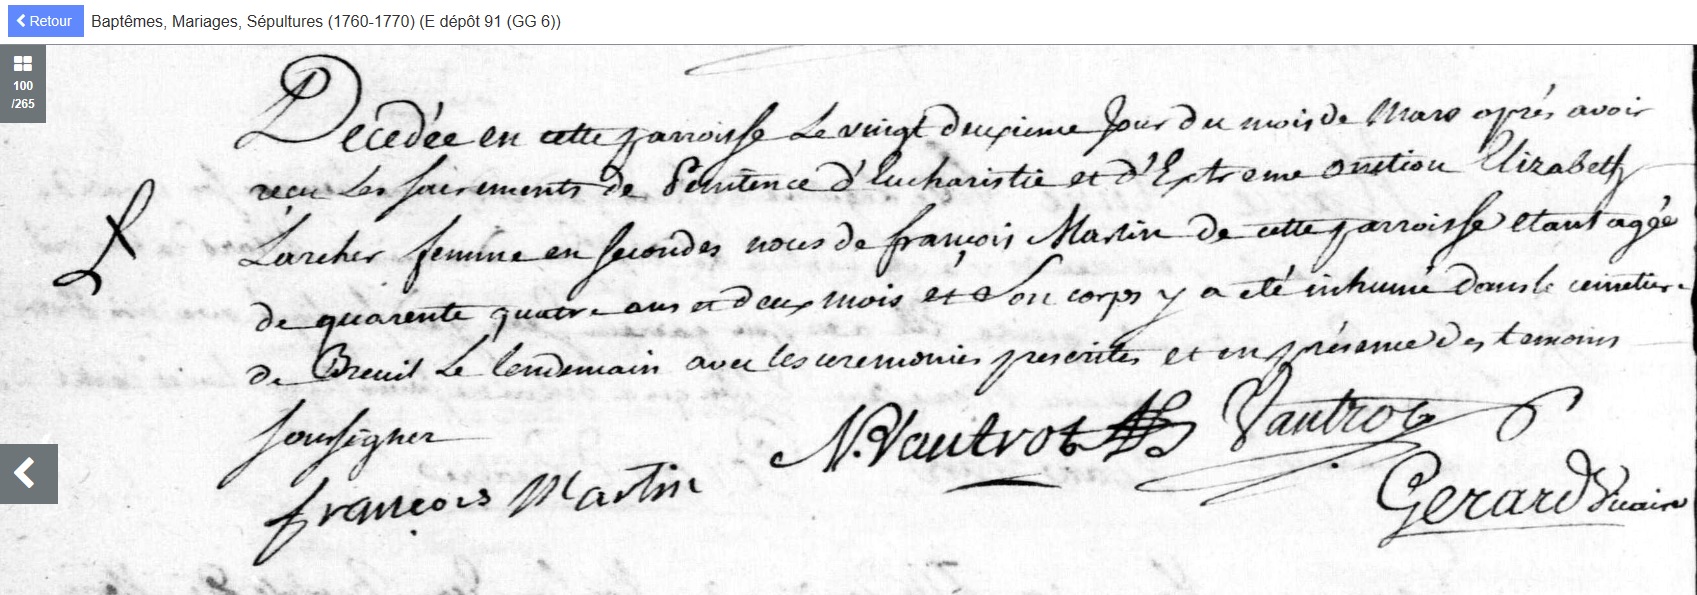 Retour Baptêmes, Mariages, Sépultures (1760-1770) (E dépôt 91 (GG 6))
100
/265
Decedée en cette parroisse Le vingt deuxieme Jour du mois de Mars après avoir
recu Les sacrements de Penitence d'Eucharistie et d'Extreme onction Elizabeth
Larcher femme en secondes noces de françois Martin de cette parroisse etant agée
de quarente quatre ans et deux mois et Son corps y a été inhumé dans le cimetiere
de Breuil Le lendemain avec les ceremonies prescrites et en présence des temoins
soussigner
N. Vautrot Vautrot
françois Martin
Gerard Vicaire